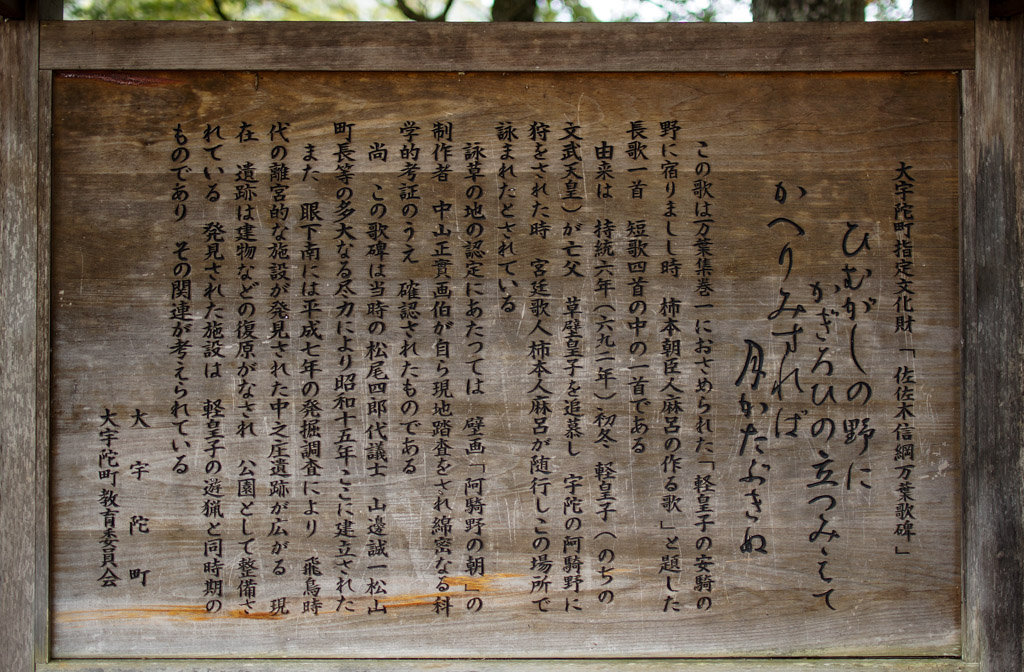 大宇陀町指定文化財「佐佐木信綱万葉歌碑」
ひむがしの野に
かぎろひの立つみえて
かへりみされば
月かたぶきぬ
この歌は万葉集巻一におさめられた「軽皇子の安騎の
野に宿りましし時　柿本朝臣人麻呂の作る歌」と題した
長歌一首　短歌四首の中の一首である
由来は　持統六年（六九二年）初冬　軽皇子（のちの
文武天皇）が亡父　草壁皇子を追慕し　宇陀の阿騎野に
狩をされた時　宮廷歌人柿本人麻呂が随行しこの場所で
詠まれたとされている
詠草の地の認定にあたつては　壁画「阿騎野の朝」の
制作者　中山正實画伯が自ら現地踏査をされ綿密なる科
学的考証のうえ　確認されたものである
尚　この歌碑は当時の松尾四郎代議士　山邊誠一松山
町長等の多大なる尽力により昭和十五年ここに建立された
また　眼下南には平成七年の発掘調査により　飛鳥時
代の離宮的な施設が発見された中之庄遺跡が広がる　現
在　遺跡は建物などの復原がなされ　公園として整備さ
れている　発見された施設は　軽皇子の遊猟と同時期の
ものであり　その関連が考えられている
大宇陀町
大宇陀町教育委員会